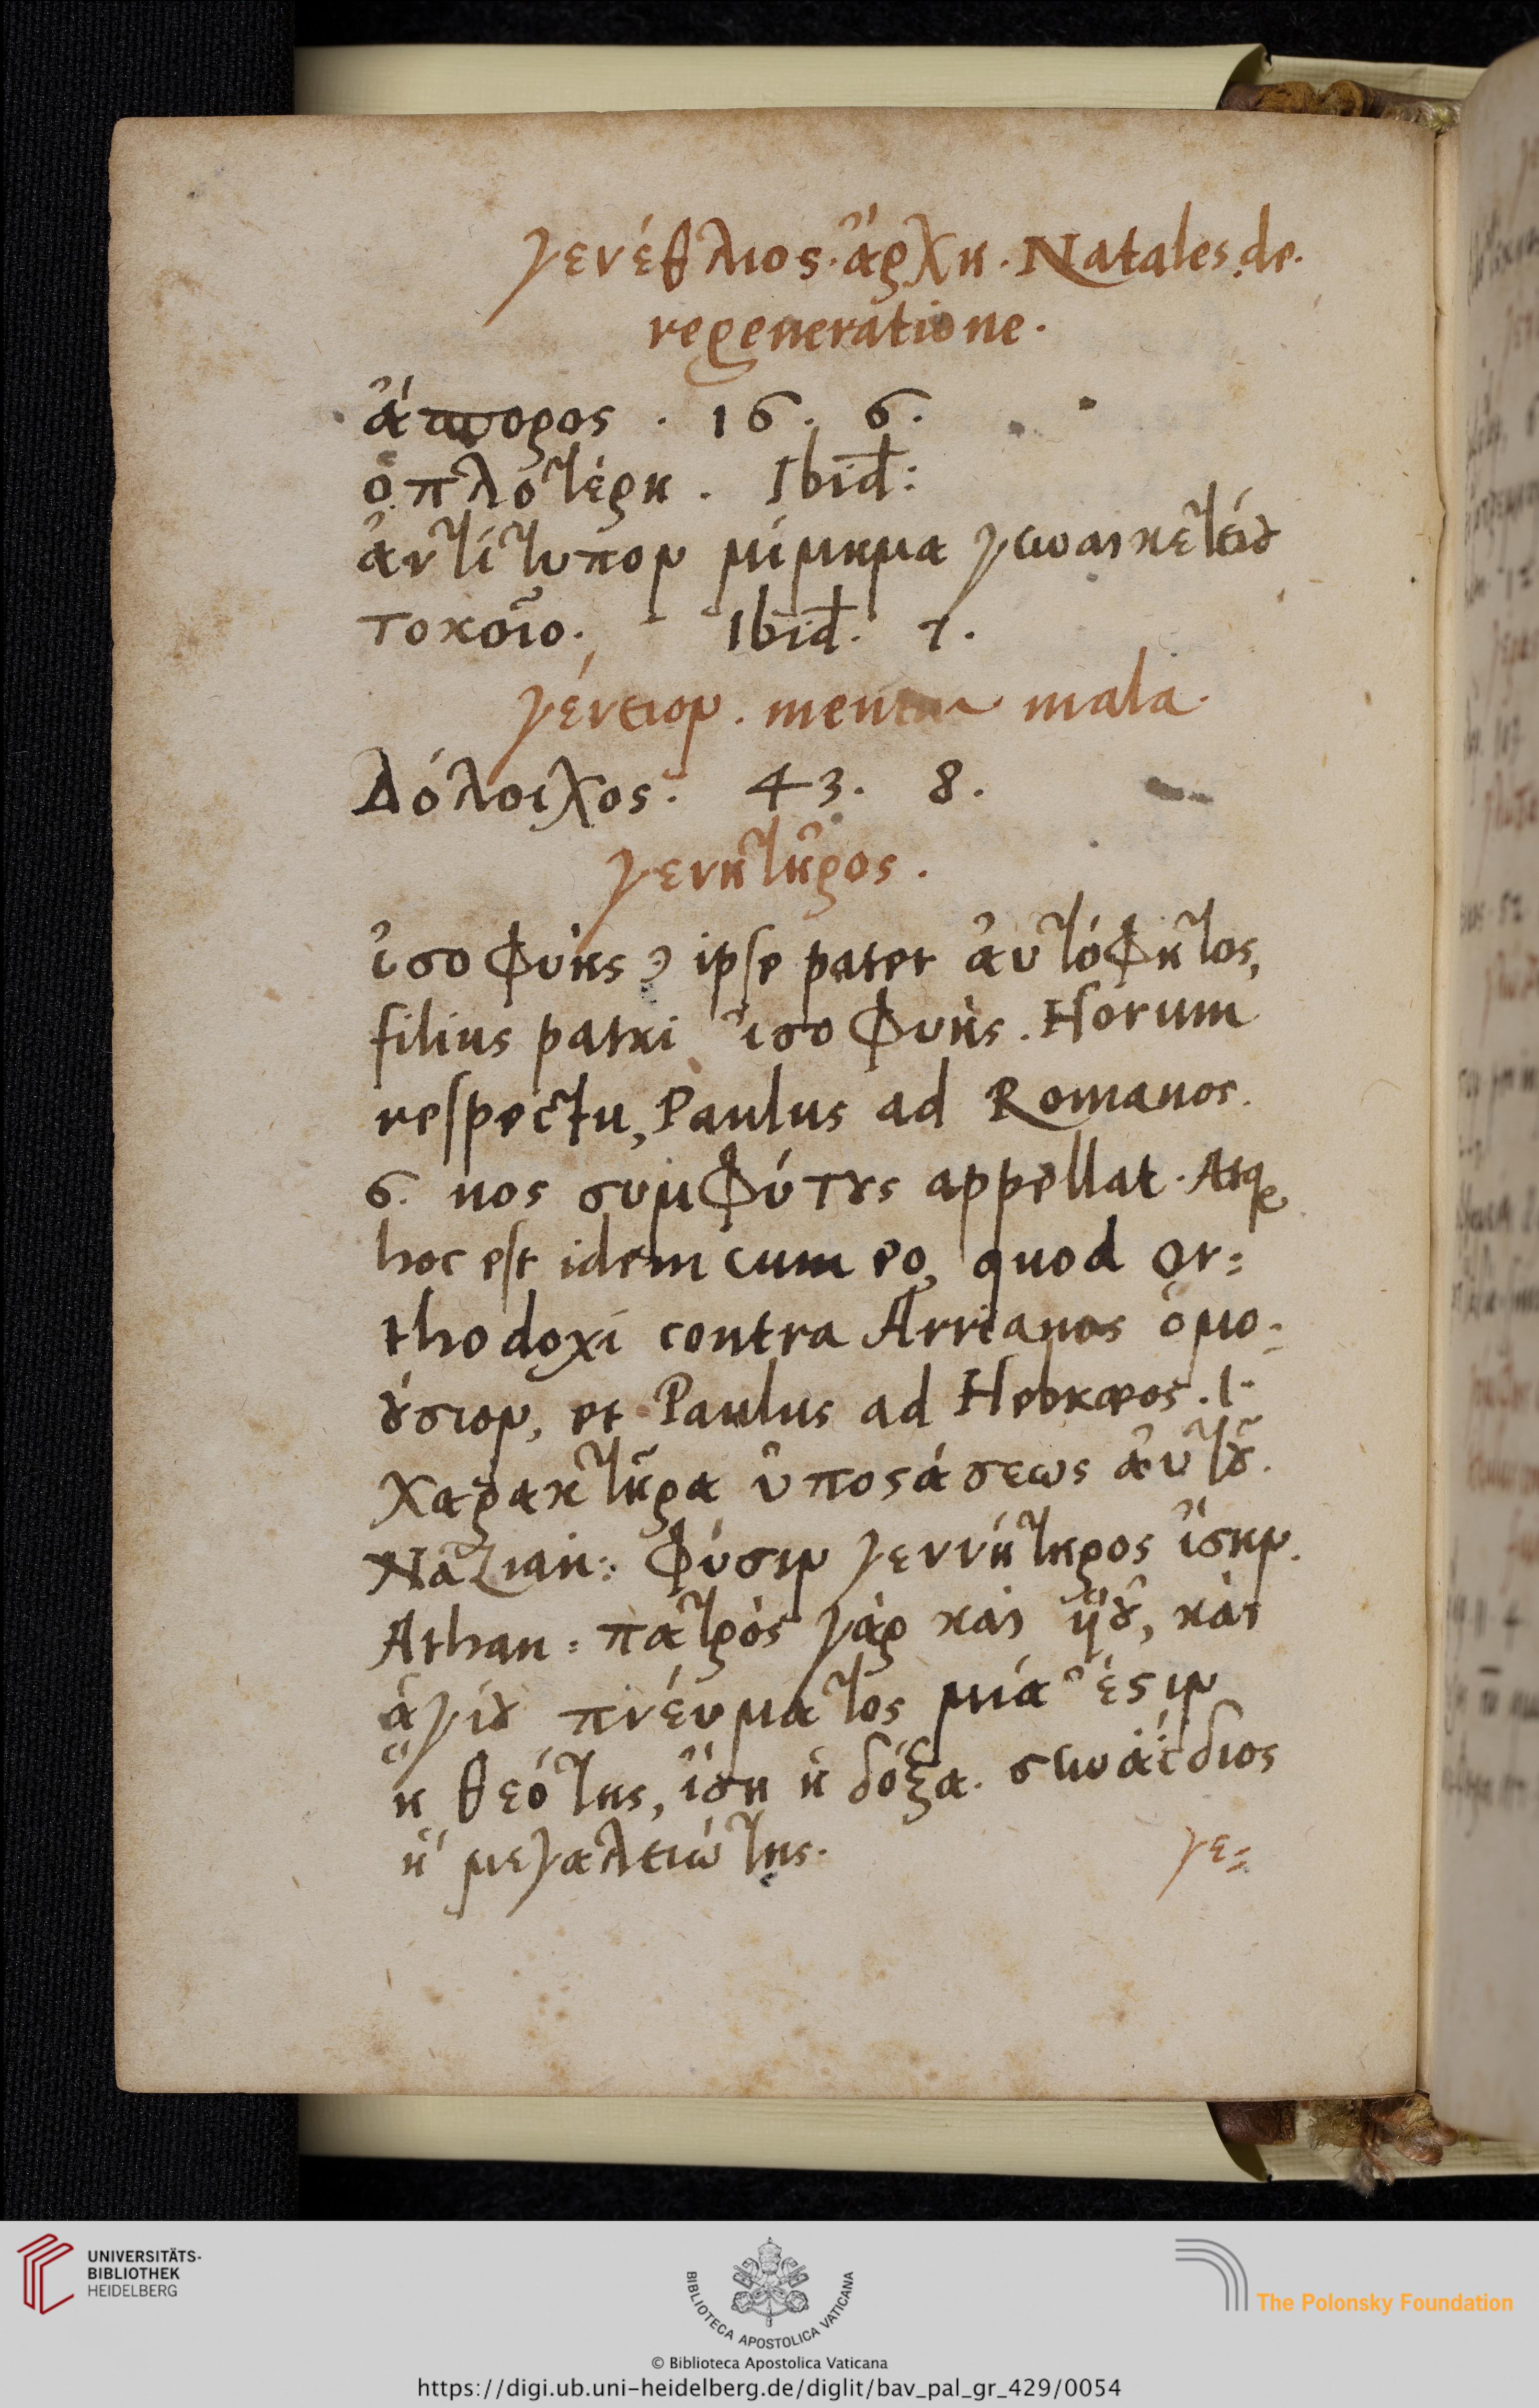 γενέθλιος. ἄρχη. Natales. de.
regeneratione.
ἄσπορος. 16. 6.
ὁπλοτέρη. Ibid:
ἀντίτυπον μίμημα γυναικετείου
τοκοῖο. Ibid. 7.
γένειον. mentum mala.
Δόλοιχος: 43. 8.
γενητῆρος.
ἰσοφυής ipse pater ἀυτόφητος,
filius patri ἰσοφυής. Horum
respectu, Paulus ad Romanos.
6. nos συμφύτους appellat. Atque
hoc est idem cum eo, quod Or=
thodoxi contra Arrianos ὁμο=
ούσιον, et Paulus ad Hebræos. 1.
χαρακτῆρα ὑποστάσεως ἀυτοῦ.
Nazian: φύσιν γεννήτηρος ἴσην.
Athan: πατρὸς γὰρ καὶ ὑιοῦ, καὶ
ἁγίου πνέυματος μιά ἐστιν
ἡ θεότης, ἴση ἡ δόξα. συναΐδιος
ἡ μεγαλειώτης.
γε=
UNIVERSITÄTS-
BIBLIOTHEK
HEIDELBERG
BIBLIOTECA APOSTOLICA VATICANA
The Polonsky Foundation
© Biblioteca Apostolica Vaticana
https://digi.ub.uni-heidelberg.de/diglit/bav_pal_gr_429/0054